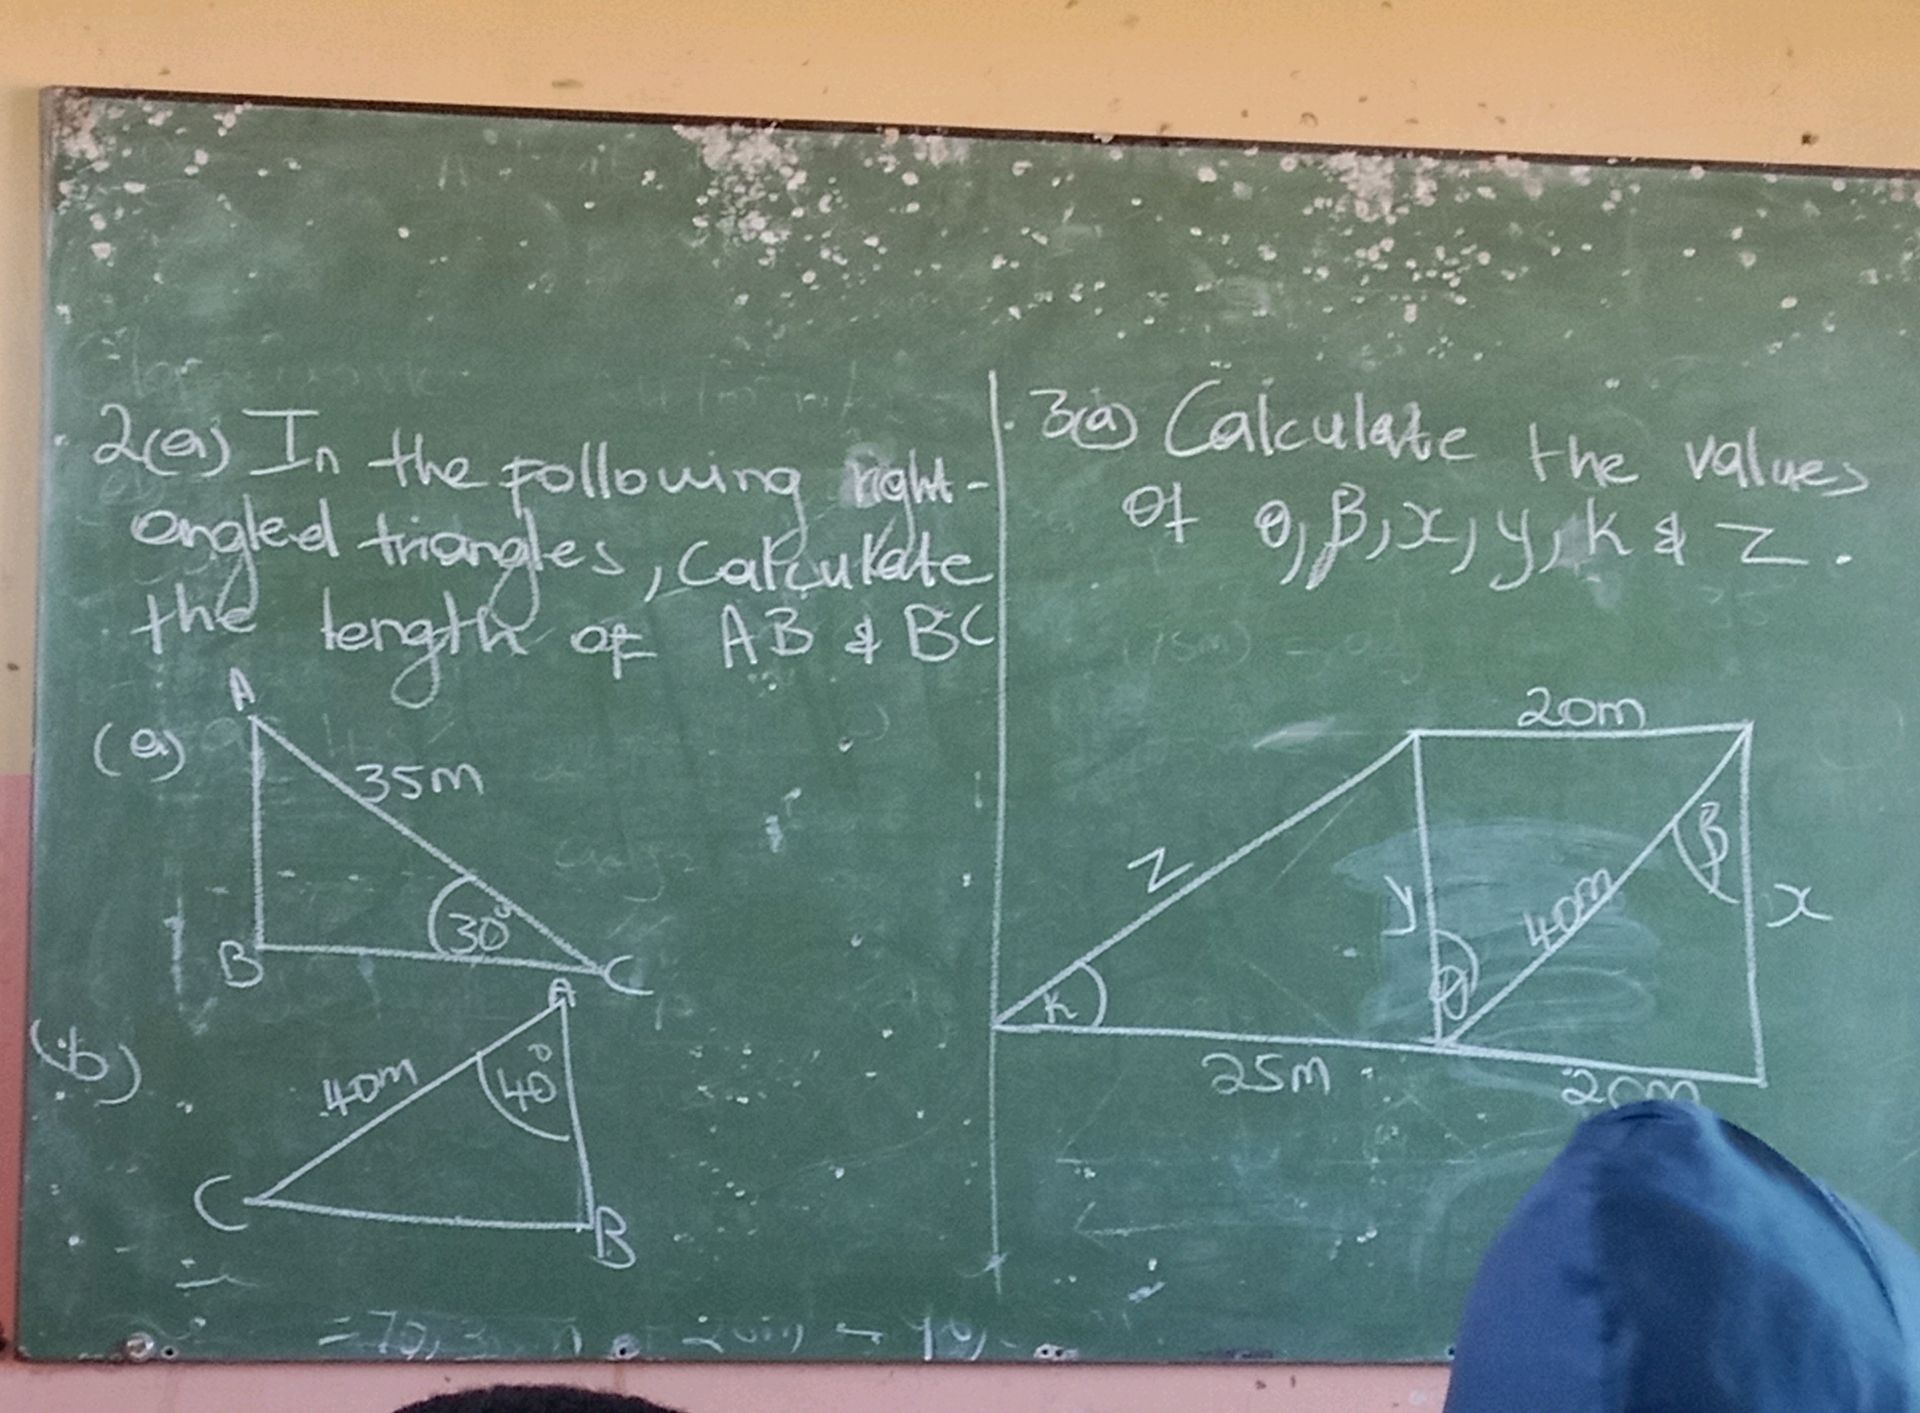 2(a) In the following right-
angled triangles, Calculate
the length of AB & BC
(a)
A
35m
30°
B
C
(b)
A
40m
40°
C
B
3(a) Calculate the values
of θ, β, x, y, k & z.
20m
z
y
40m
β
x
θ
k
25m
20m